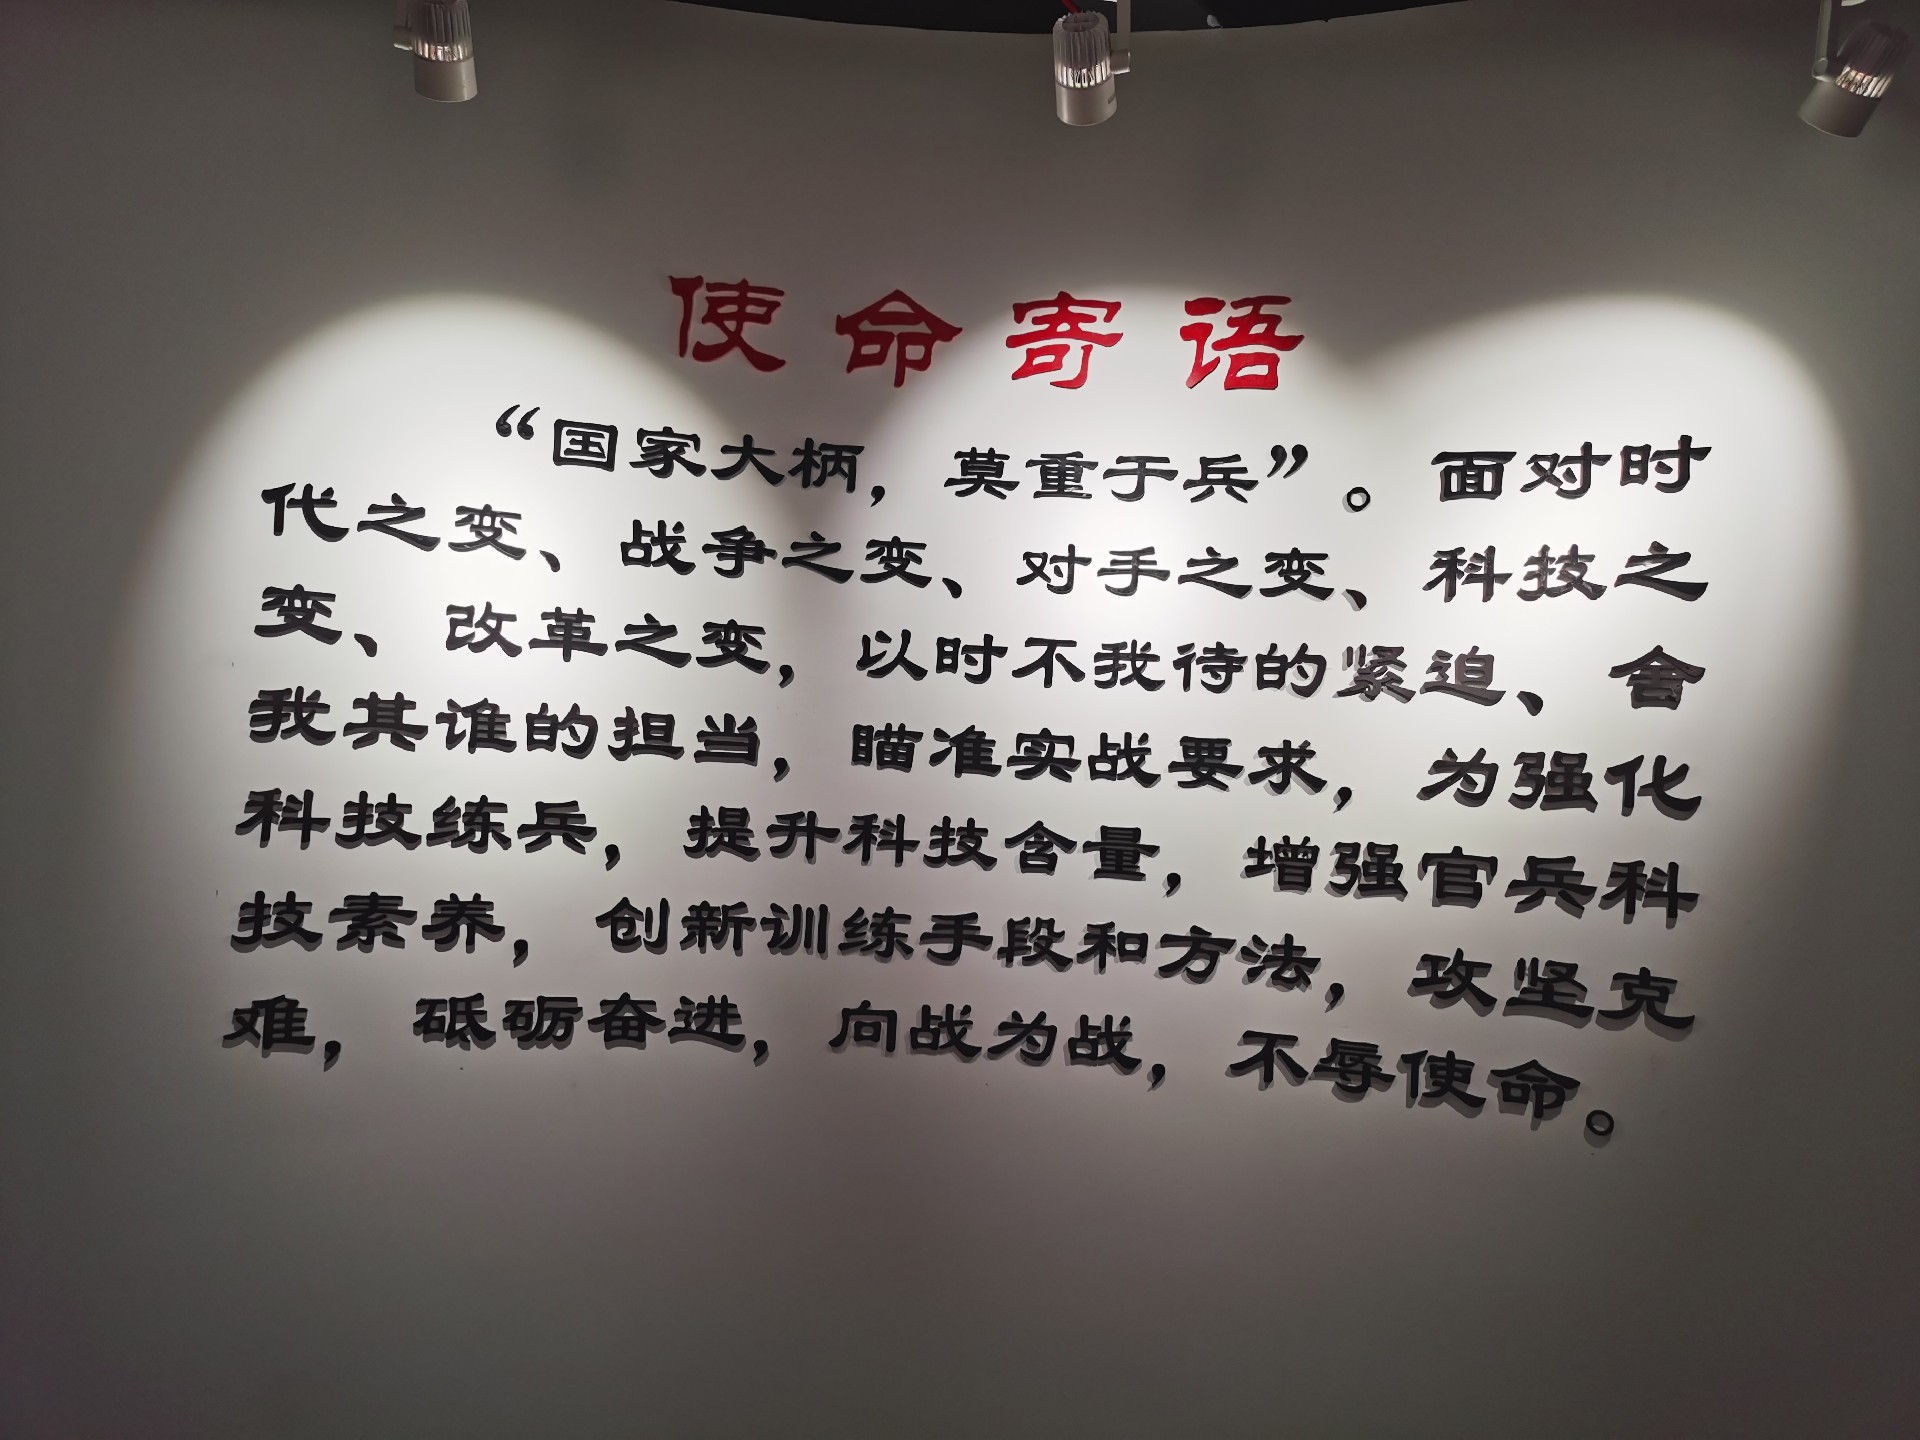 使命寄语
“国家大柄，莫重于兵”。面对时
代之变、战争之变、对手之变、科技之
变、改革之变，以时不我待的紧迫、舍
我其谁的担当，瞄准实战要求，为强化
科技练兵，提升科技含量，增强官兵科
技素养，创新训练手段和方法，攻坚克
难，砥砺奋进，向战为战，不辱使命。